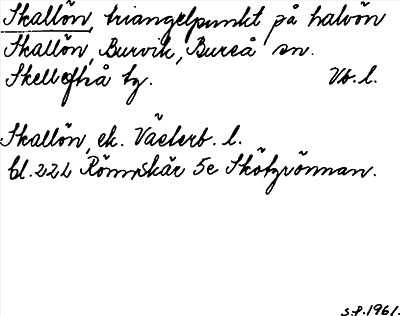 Skallön, triangelpunkt på halvön
Skallön, Burvik, Bureå sn.
Skellefteå tg. Vb. l.
Skallön, ek. Västerb. l.
bl. 22L Rönnskär 5e Skötgrönnan.
S.F. 1961.